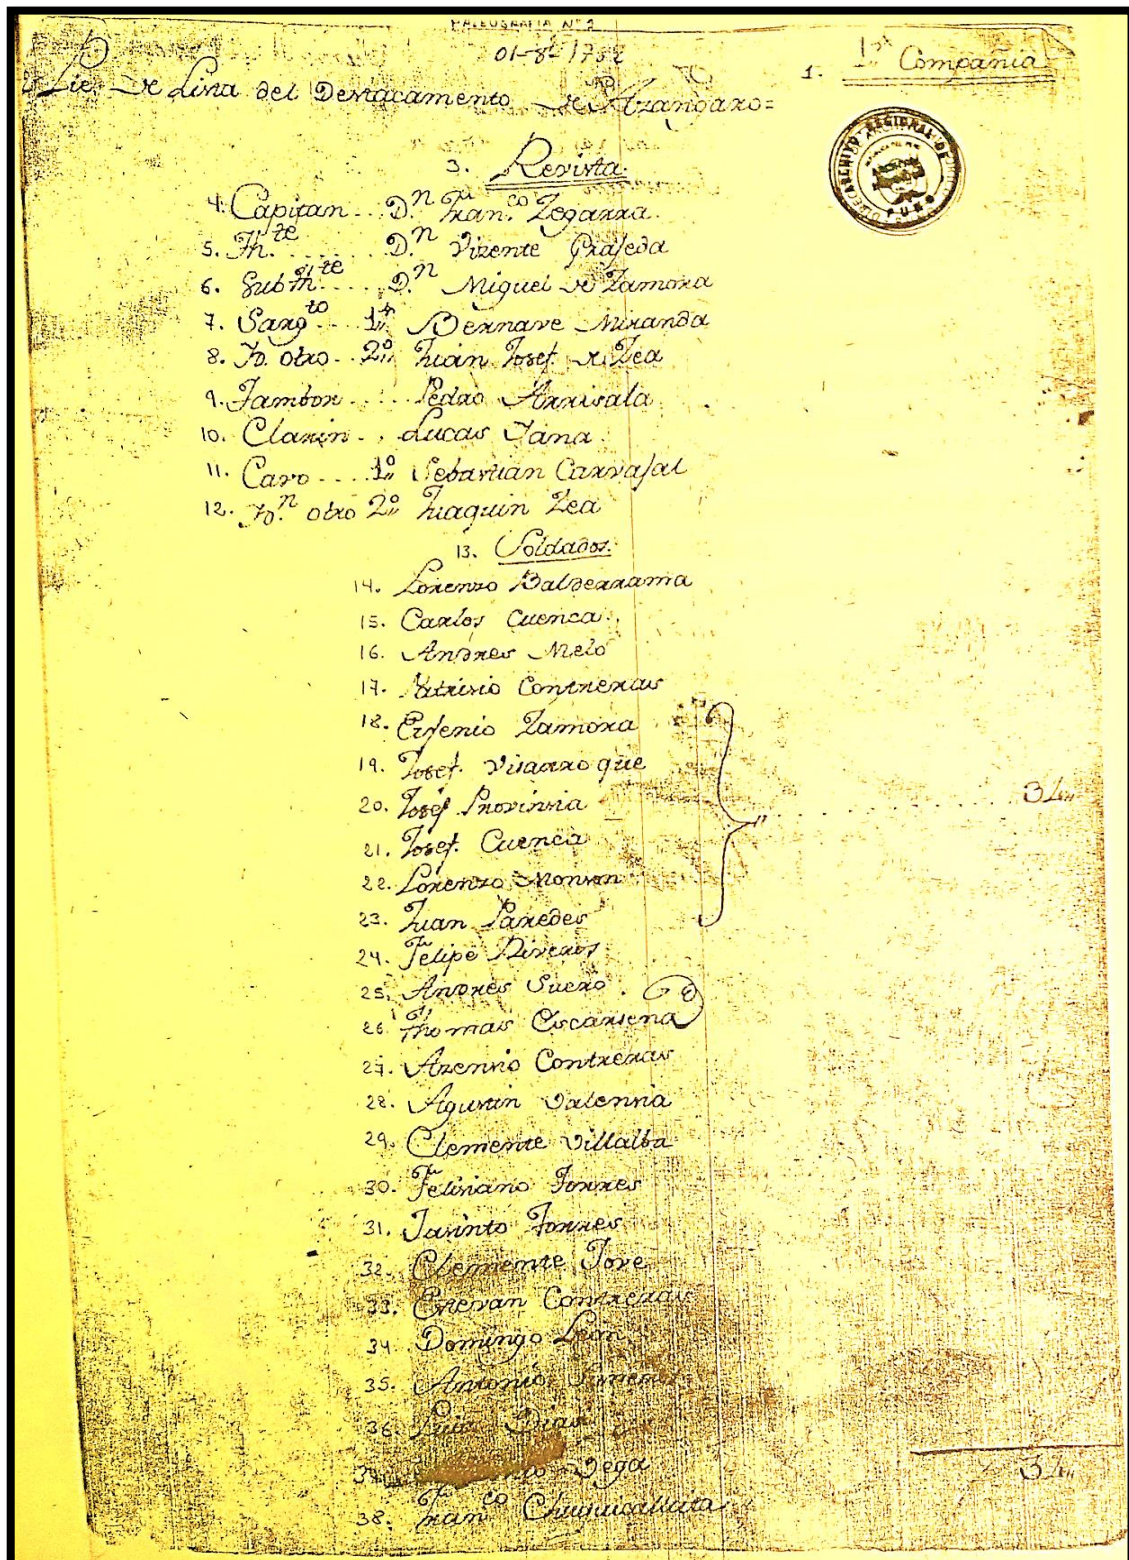 PALEOGRAFIA Nº 2
01-8-1782
1. 1ª Compañia
2. Pie de Lista del Destacamento de Azangaro=
ARCHIVO REGIONAL DE PUNO
3. Revista
4. Capitan... D.n Fran.co Zegarra.
5. Th.te ...... D.n Vizente Grajeda
6. Subth.te .... D.n Miguel de Zamora
7. Sarg.to ... 1º Bernave Miranda
8. Yd. otro.. 2º Juan Josef de Zea
9. Tambor .... Pedro Arrisala
10. Clarin .. Lucas Tana.
11. Cavo .... 1º Sebastian Carvajal
12. Yd.n otro 2º Juaquin Zea
13. Soldados.
14. Lorenzo Balderrama
15. Carlos Cuenca.
16. Andres Melo
17. Patricio Contreras
18. Eujenio Zamora
19. Josef. Visarroque
20. Josef Provincia ............ 34,,
21. Josef. Cuenca
22. Lorenzo Monson
23. Juan Paredes
24. Felipe Riveros
25. Andres Suero.
26. Thomas Escarsena
27. Azencio Contreras
28. Agustin Valencia
29. Clemente Villalba
30. Feliciano Torres
31. Jacinto Torres
32. Clemente Tove
33. Estevan Contreras
34. Domingo Leon
35. Antonio
36. Luis Dias
37. Vega
34,,
38. Fran.co